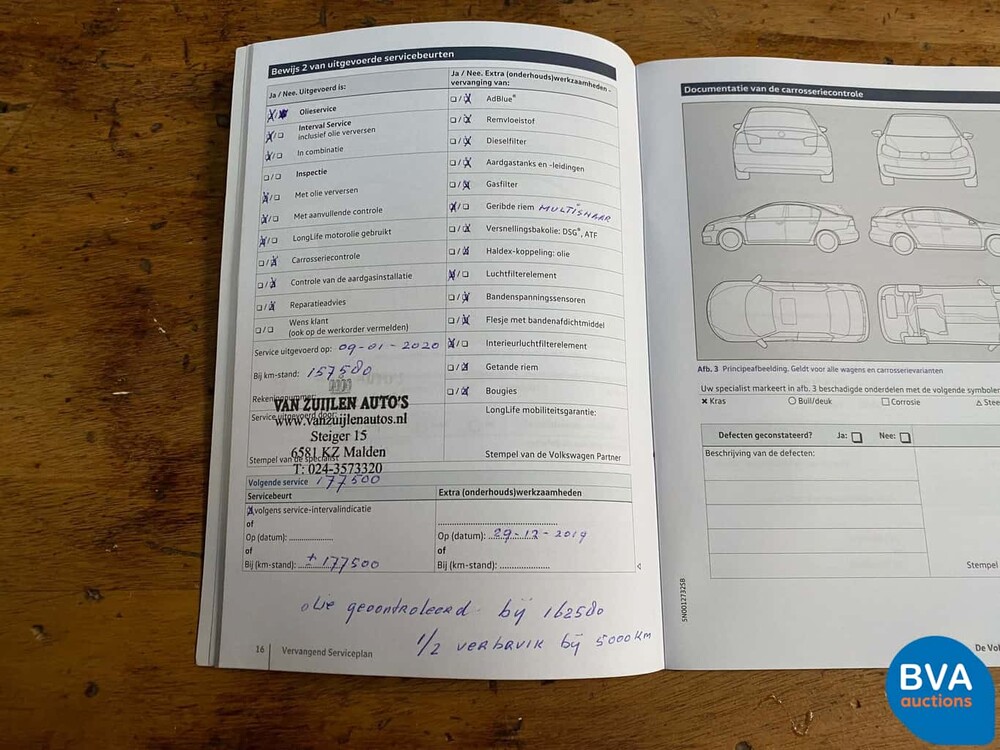 Bewijs 2 van uitgevoerde servicebeurten
Ja / Nee. Uitgevoerd is:
Olieservice
Interval Service
inclusief olie verversen
In combinatie
Inspectie
Met olie verversen
Met aanvullende controle
LongLife motorolie gebruikt
Carrosseriecontrole
Controle van de aardgasinstallatie
Reparatieadvies
Wens klant
(ook op de werkorder vermelden)
Service uitgevoerd op: 09-01-2020
Bij km-stand: 157580
Rekeningnummer:
Service uitgevoerd door:
VAN ZUIJLEN AUTO'S
www.vanzuijlenautos.nl
Steiger 15
6581 KZ Malden
T: 024-3573320
Stempel van de specialist
Ja / Nee. Extra (onderhouds)werkzaamheden -
vervanging van:
AdBlue®
Remvloeistof
Dieselfilter
Aardgastanks en -leidingen
Gasfilter
Geribde riem MULTISNAAR
Versnellingsbakolie: DSG®, ATF
Haldex-koppeling: olie
Luchtfilterelement
Bandenspanningssensoren
Flesje met bandenafdichtmiddel
Interieurluchtfilterelement
Getande riem
Bougies
LongLife mobiliteitsgarantie:
Stempel van de Volkswagen Partner
Volgende service 177500
Servicebeurt
volgens service-intervalindicatie
of
Op (datum): ..................
of
Bij (km-stand): ± 177500
Extra (onderhouds)werkzaamheden
Op (datum): 29-12-2019
of
Bij (km-stand): ..................
olie gecontroleerd bij 162580
1/2 verbruik bij 5000 KM
16 Vervangend Serviceplan
Documentatie van de carrosseriecontrole
Afb. 3 Principeafbeelding. Geldt voor alle wagens en carrosserievarianten
Uw specialist markeert in afb. 3 beschadigde onderdelen met de volgende symbolen
× Kras ○ Buil/deuk □ Corrosie △ Stee
Defecten geconstateerd? Ja: □ Nee: □
Beschrijving van de defecten:
Stempel
5N0012732SB
De Vol
BVA
auctions